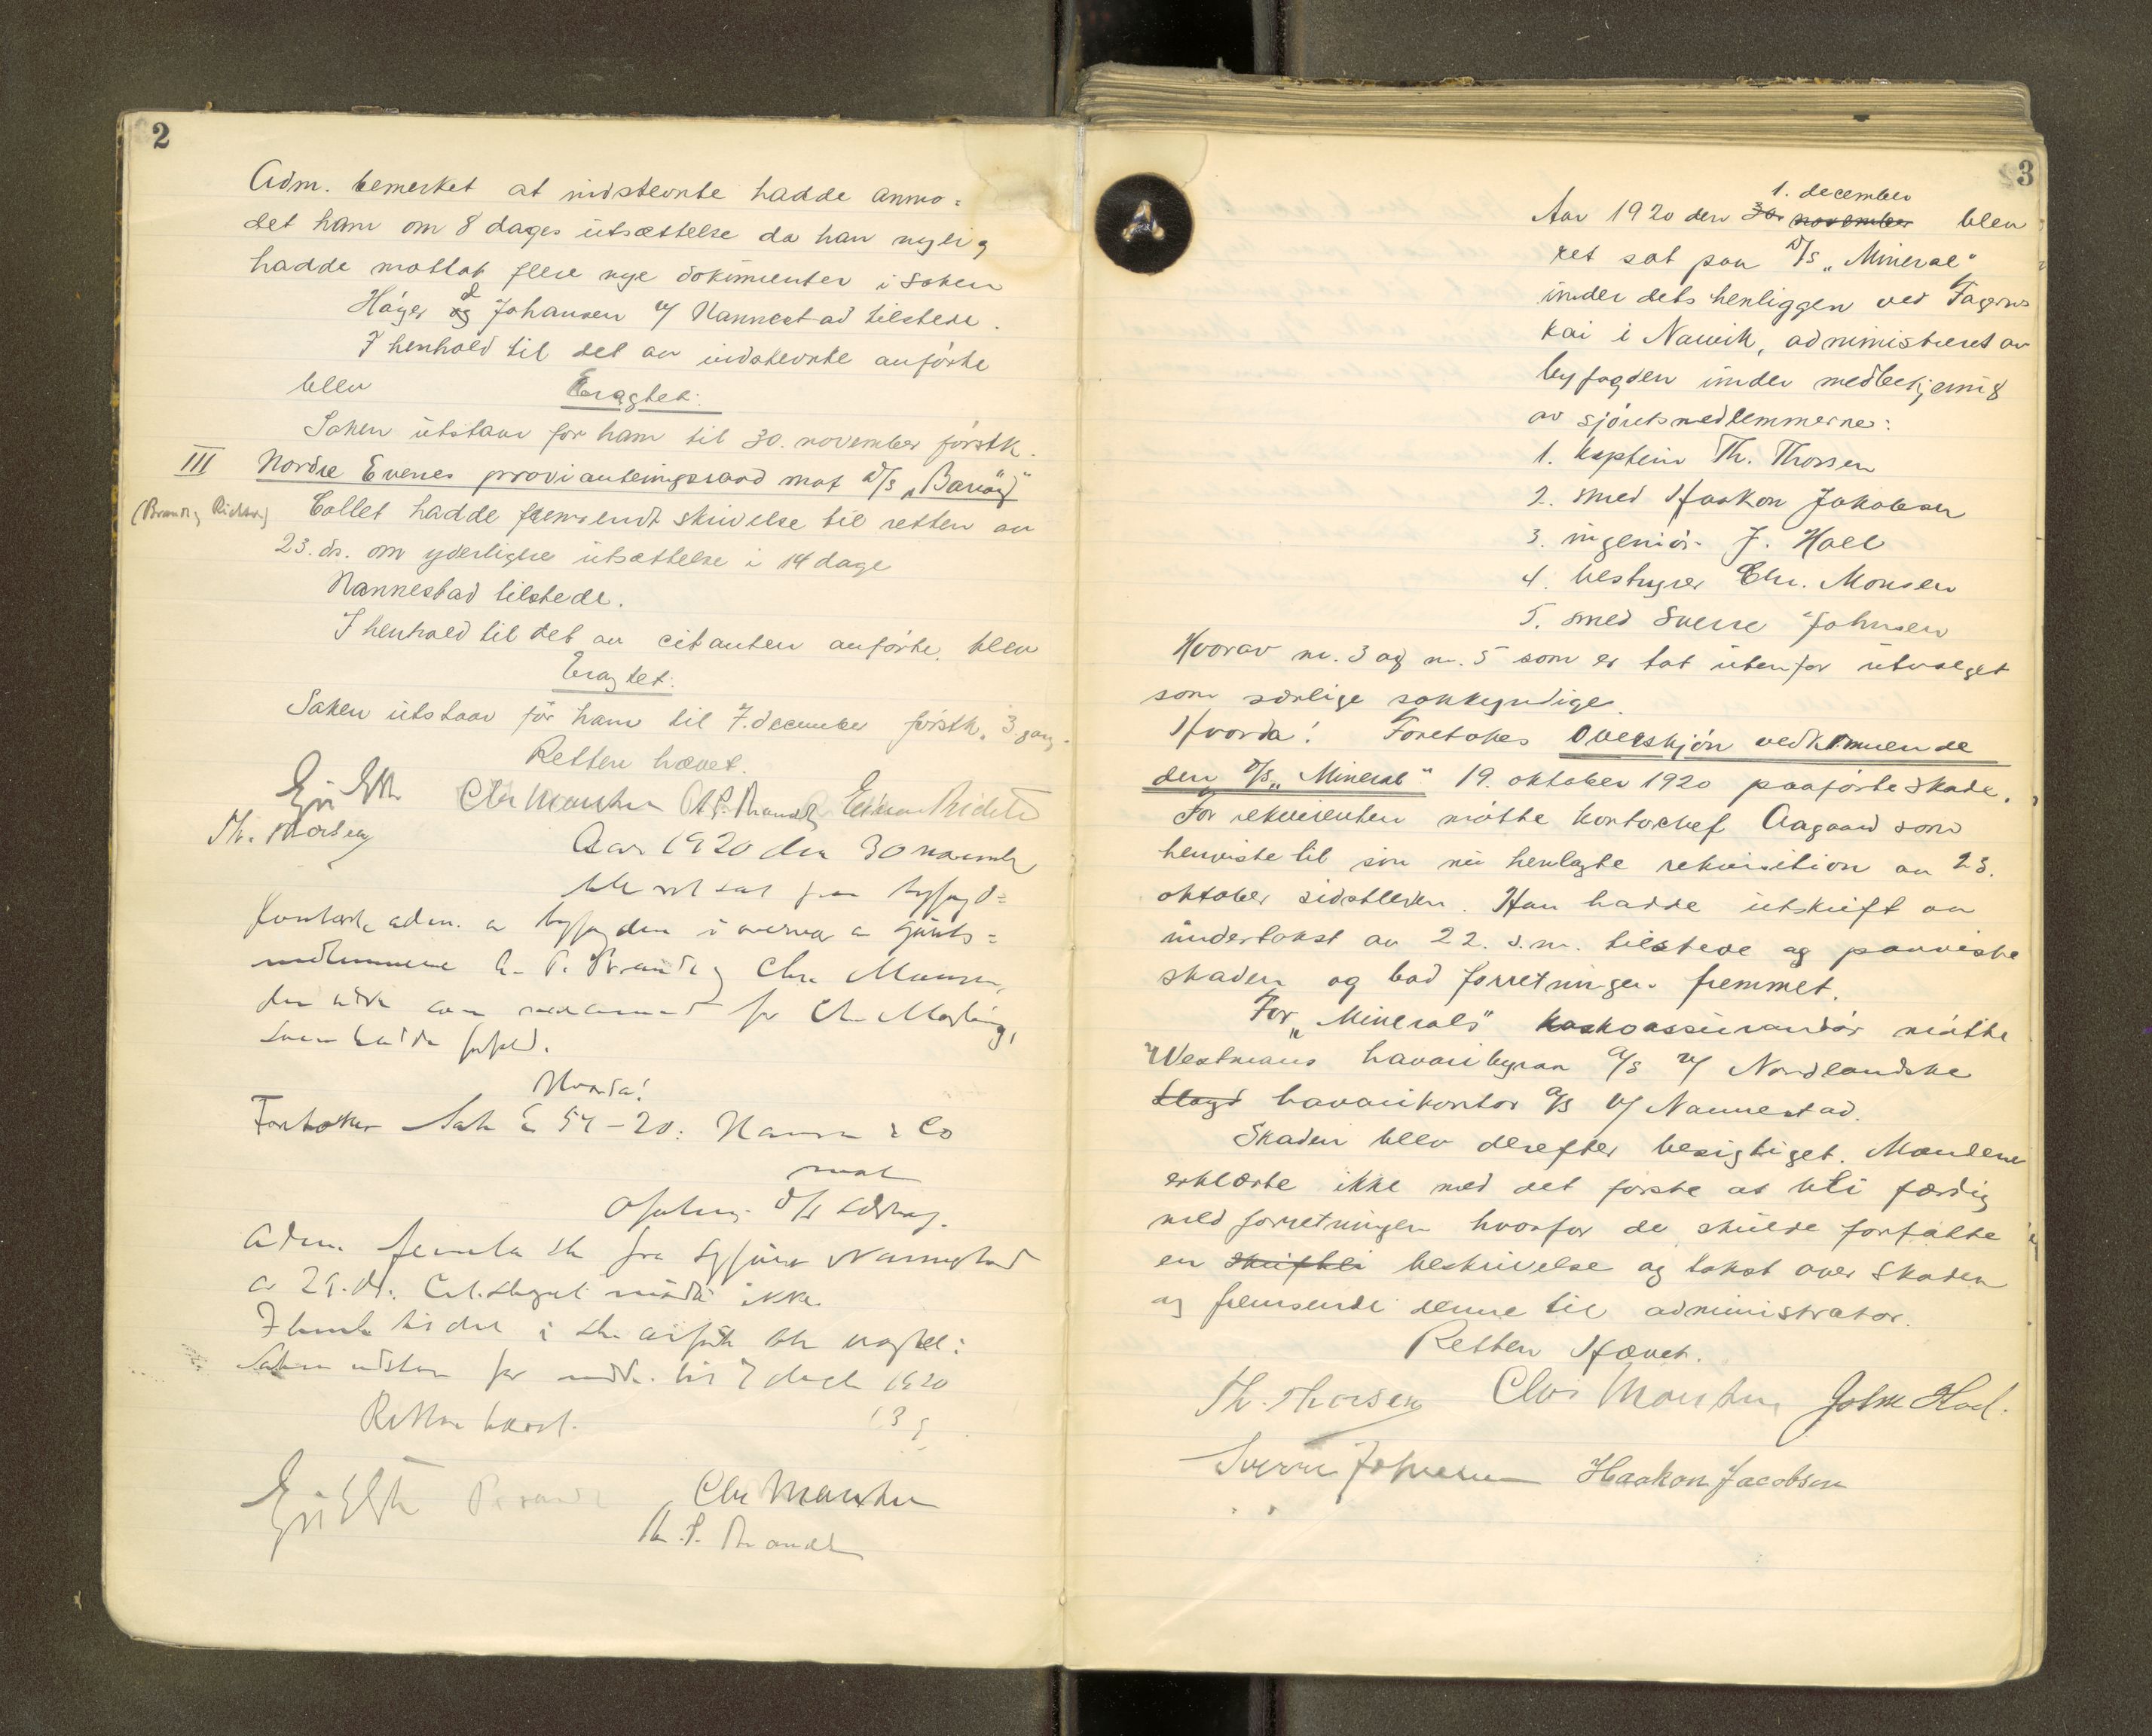 2
Adm. bemerket at indstevnte hadde anmo=
det ham om 8 dages utsættelse da han nylig
hadde mottat flere nye dokumenter i saken
Høyer & Johansen v/ Nannestad tilstede.
I henhold til det av indstevnte anførte
blev Eragtet:
Saken utstaar for ham til 30. november førstk.
III Nordre Evenes provianteringsraad mot D/S „Barøy"
(Brandt, Richter) Collet hadde fremsendt skrivelse til retten av
23. ds. om yderligere utsættelse i 14 dage
Nannestad tilstede.
I henhold til det av citanten anførte, blev
Eragtet:
Saken utstaar for ham til 7. december førstk. 3. gang.
Retten hævet.
Chr Monsen A. P. Brandt Einar Richter
Th. Thorsen
Aar 1920 den 30 november
blev ret sat paa byfogd=
kontoret, adm. av byfogden i overvær av sjørets=
medlemmene A. P. Brandt og Chr. Monsen,
som hadde forfald.
Hvorda!
Foretokes Sak 54-20: Hansen & Co
mot
Adm. fremla skr fra Nannestad
av 29. ds. møtte ikke
I henhold til det i skr anførte blev eragtet:
Saken utstaar for til 7 decbr 1920
Retten hævet. (3 g
Brandt Chr Monsen
A. P. Brandt
3
1. december
Aar 1920 den 30. november blev
ret sat paa D/S „Mineral"
under dets henliggen ved Fagernes
kai i Narvik, administreret av
byfogden under medbetjening
av sjøretsmedlemmerne:
1. kaptein Th. Thorsen
2. smed Haakon Jakobsen
3. ingeniør J. Hoel
4. bestyrer Chr. Monsen
5. smed Sverre Johnsen
Hvorav nr. 3 og nr. 5 som er tat utenfor utvalget
som særlige sakkyndige.
Hvorda! Foretokes Overskjøn vedkommende
den D/S „Mineral" 19. oktober 1920 paaførte skade.
For rekvirenten møtte kontorchef Aagaard som
henviste til sin nu henlagte rekvisition av 23.
oktober sidstleden. Han hadde utskrift av
undertakst av 22. s.m. tilstede og paaviste
skaden og bad forretningen fremmet.
For „Minerals" kaskoassurandør møtte
Westmans havaribyraa A/S v/ Nordlandske
Lloyd havarikontor A/S v/ Nannestad.
Skaden blev derefter besigtiget. Mændene
erklærte ikke med det første at bli færdig
med forretningen hvorfor de skulde forfatte
en skriftli beskrivelse og takst over skaden
og fremsende denne til administrator.
Retten Hævet.
Th. Thorsen Chr Monsen John Hoel.
Sverre Johnsen Haakon Jacobsen